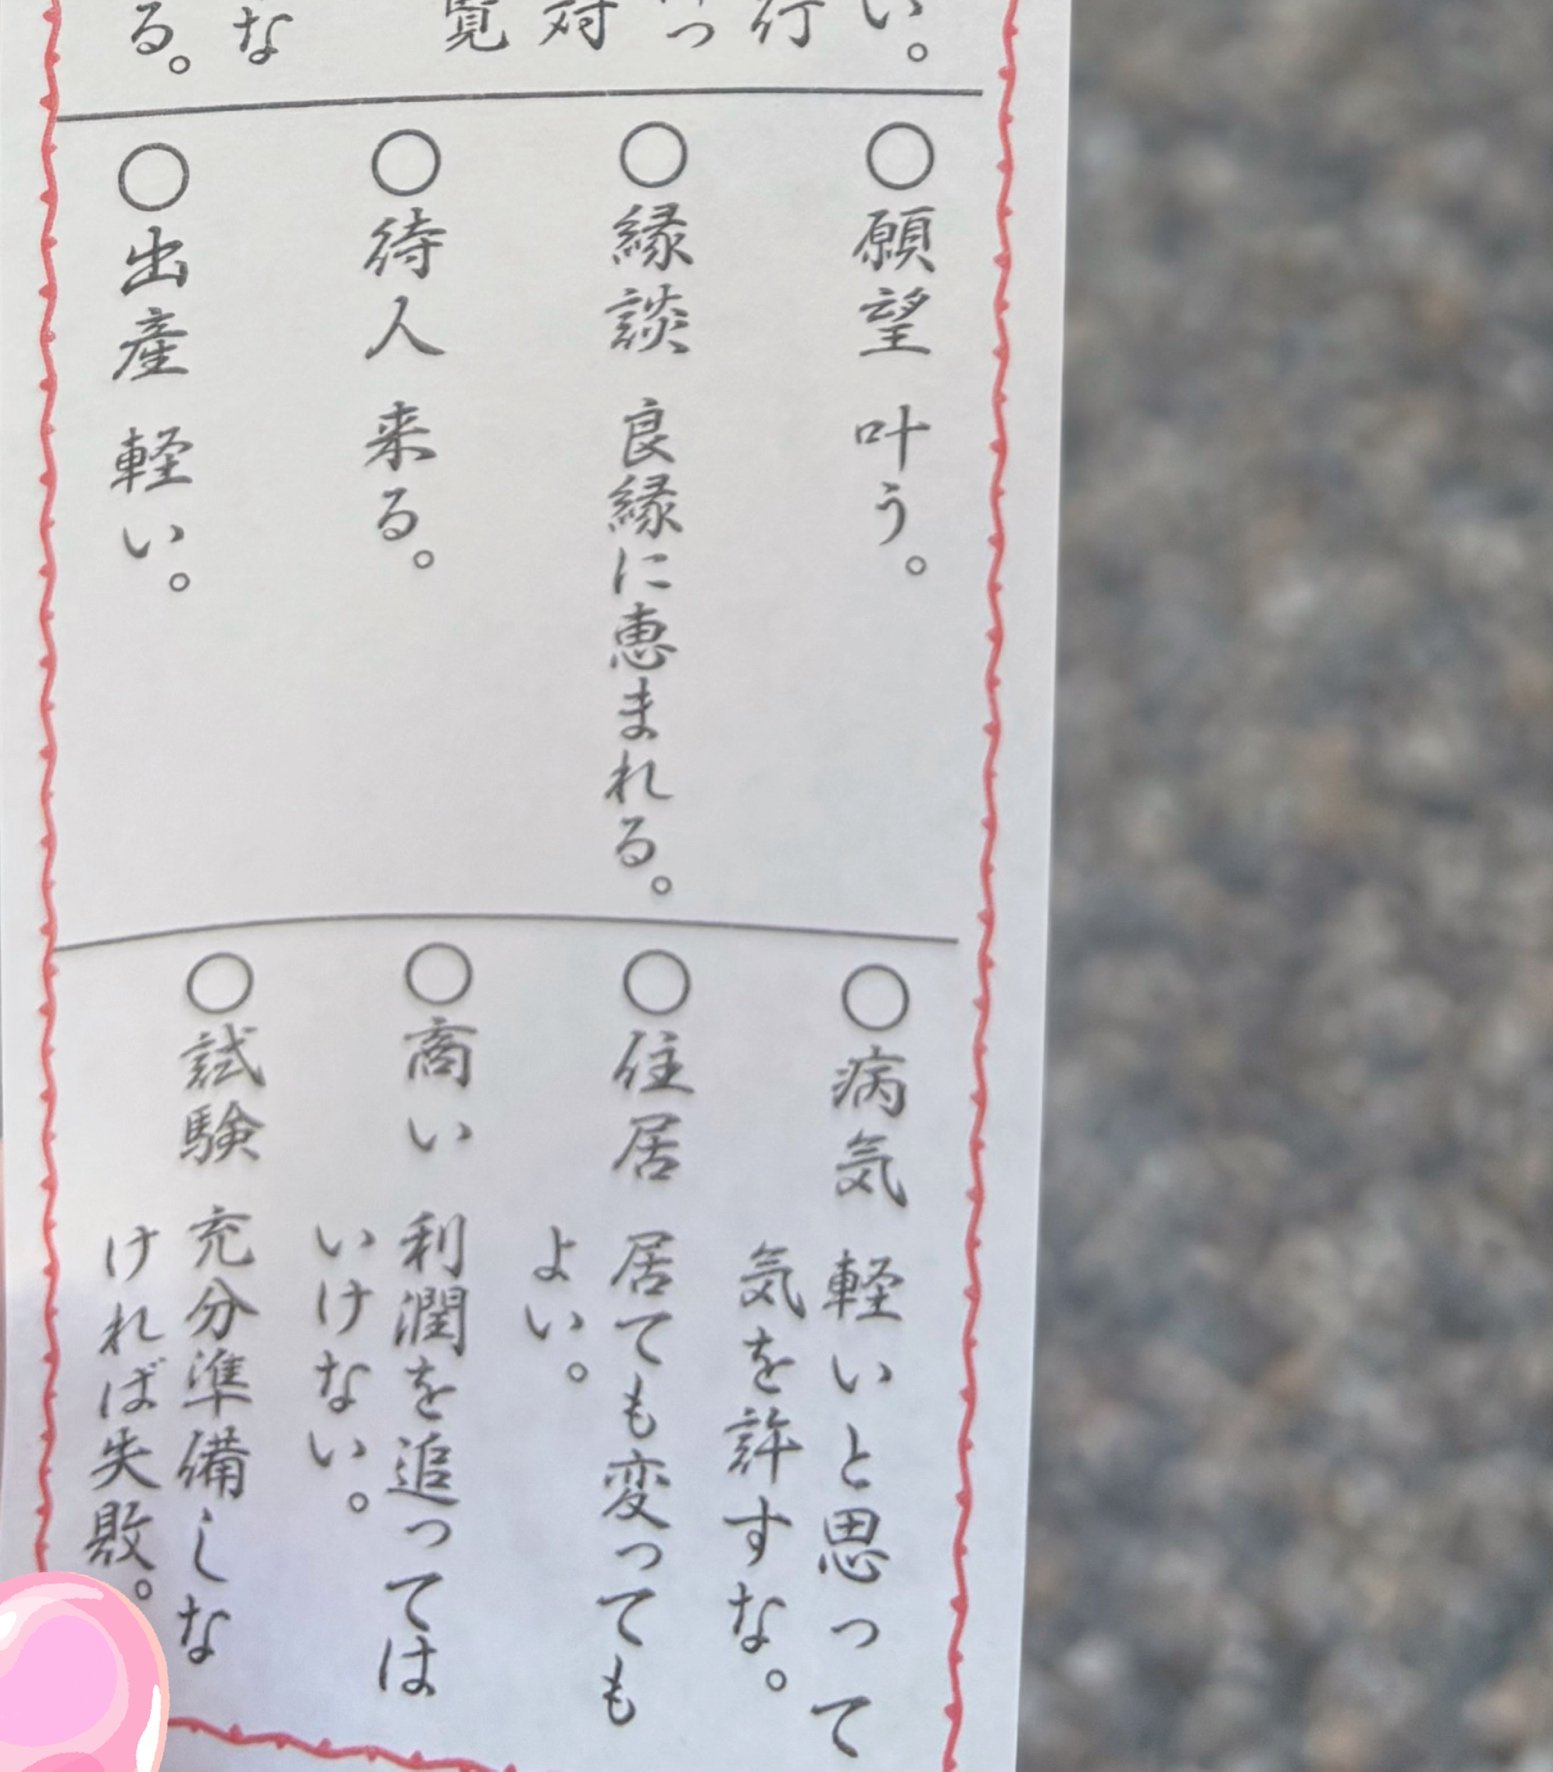 い。
行
対
覧
な
る。
○願望 叶う。
○縁談 良縁に恵まれる。
○待人 来る。
○出産 軽い。
○病気 軽いと思って
気を許すな。
○住居 居ても変っても
よい。
○商い 利潤を追っては
いけない。
○試験 充分準備しな
ければ失敗。